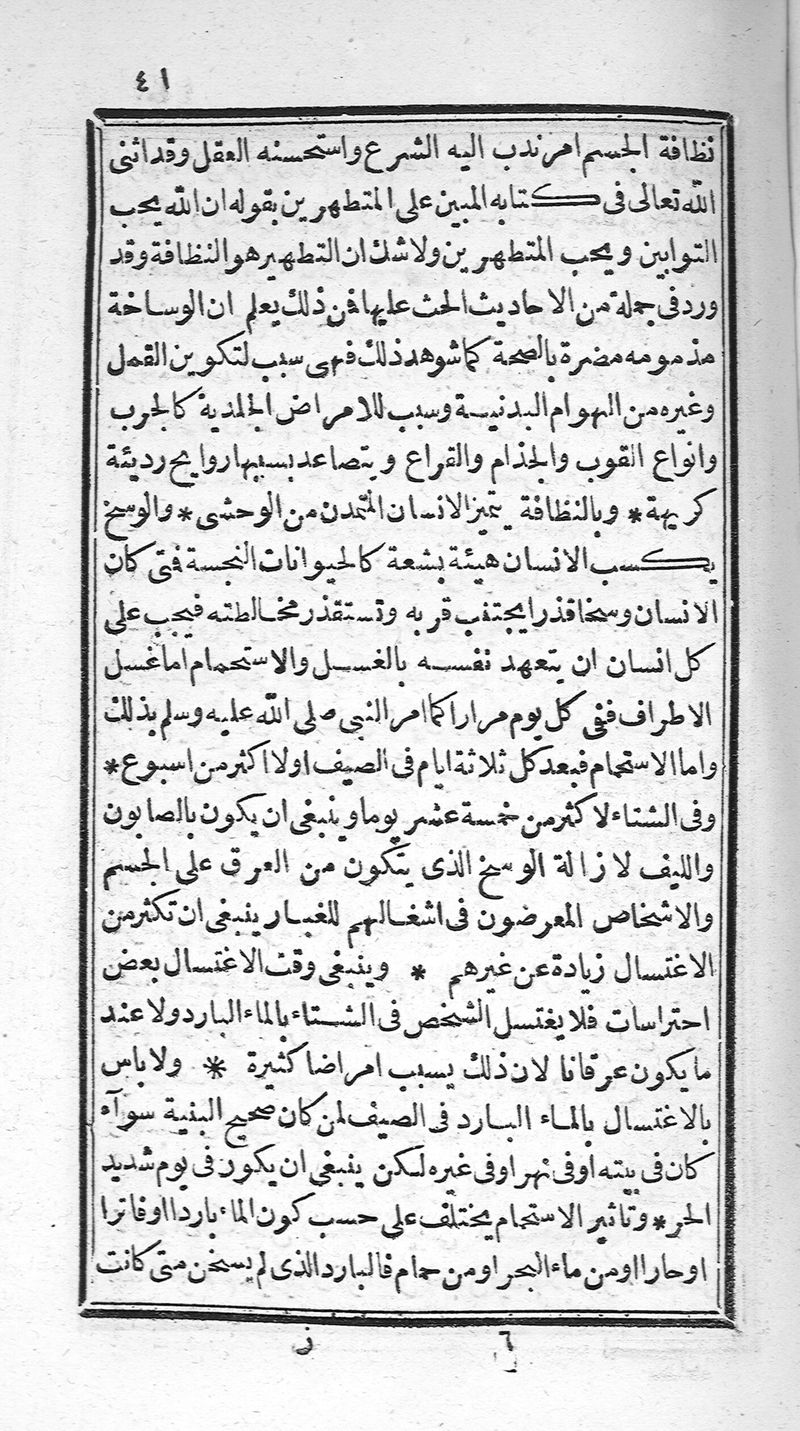 ٤١
نظافة الجسم امر ندب اليه الشرع واستحسنه العقل وقد اثنى
الله تعالى فى كتابه المبين على المتطهرين بقوله ان الله يحب
التوابين ويحب المتطهرين ولا شك ان التطهير هو النظافة وقد
ورد فى جملة من الاحاديث الحث عليها فمن ذلك يعلم ان الوساخة
مذمومه مضرة بالصحة كما شوهد ذلك فهى سبب لتكوين القمل
وغيره من الهوام البدنية وسبب للامراض الجلدية كالجرب
وانواع القوب والجذام والقراع ويتصاعد بسببها روايح رديئة
كريهة * وبالنظافة يتميز الانسان المتمدن من الوحشى * والوسخ
يكسب الانسان هيئة بشعة كالحيوانات النجسة فتى كان
الانسان وسخا قذرا يجتنب قربه وتستقذر مخالطته فيجب على
كل انسان ان يتعهد نفسه بالغسل والاستحمام اما غسل
الاطراف ففى كل يوم مرارا كما امر النبى صلى الله عليه وسلم بذلك
واما الاستحمام فبعد كل ثلاثة ايام فى الصيف اولا اكثر من اسبوع *
وفى الشتاء لا كثر من خمسة عشر يوما وينبغى ان يكون بالصابون
والليف لازالة الوسخ الذى يتكون من العرق على الجسم
والاشخاص المعرضون فى اشغالهم للغبار ينبغى ان تكثر من
الاغتسال زيادة عن غيرهم * وينبغى وقت الاغتسال بعض
احتراسات فلا يغتسل الشخص فى الشتاء بالماء البارد ولا عند
ما يكون عرقانا لان ذلك يسبب امراضا كثيرة * ولا باس
بالاغتسال بالماء البارد فى الصيف لمن كان صحيح البنية سوآء
كان فى بيته اوفى نهر اوفى غيره لكن ينبغى ان يكون فى يوم شديد
الحر * وتاثير الاستحمام يختلف على حسب كون الماء باردا او فاترا
او حارا او من ماء البحر او من حمام فالبارد الذى لم يسخن متى كانت
٦ ز